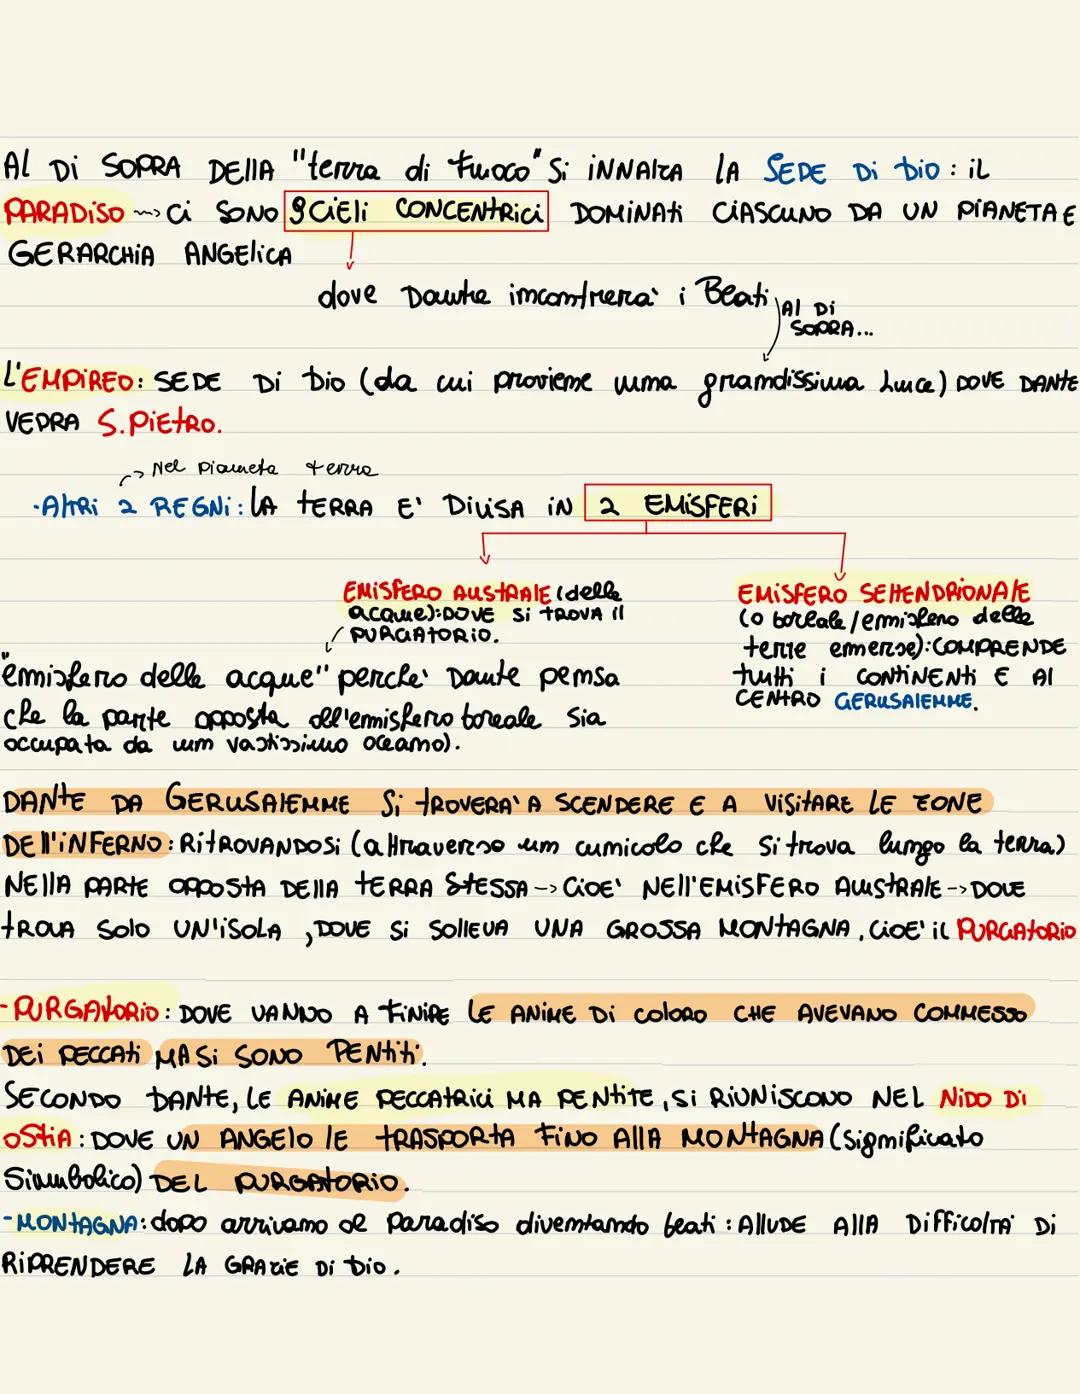 Al Di SOPRA DEllA "terra di fuoco" Si iNNAlZA lA SEDE Di Dio : iL
PARADiSO ~~> Ci SONO 9 CiEli CONCENtRiCi DOMiNAti CiASCUNO DA UN PiANETA E
GERARCHiA ANGELiCA
dove Dante incontrerà i Beati
Al Di
SOPRA...
L'EMPiREO: SEDE Di Dio (da cui proviene una grandissima luce) DOVE DANTE
VEDRA S. PiEtRO.
-> Nel pianeta terra
·AltRi 2 REGNi: LA tERRA E' DiViSA iN 2 EMiSFERi
EMiSFERO AUStRAlE (delle
acque): DOVE Si tROVA il
PURGATORiO.
EMiSFERO SEttENDRiONAlE
(o boreale/emisfero delle
terre emerse): COMPRENDE
tutti i CONtiNENti E Al
CENTRO GERUSAlEMME.
"emisfero delle acque" perchè Dante pensa
che la parte opposta all'emisfero boreale sia
occupata da un vastissimo oceano).
DANtE DA GERUSAlEMME Si tROVERA' A SCENDERE E A ViSitARE LE ZONE
DEll'iNFERNO: RitROVANDOSi (attraverso un cunicolo che si trova lungo la terra)
NEllA PARtE OPPOSTA DEllA tERRA StESSA -> CiOE' NEll'EMiSFERO AUStRAlE -> DOVE
tROVA SOLO UN'iSOLA , DOVE Si SOLLEVA UNA GROSSA MONTAGNA, CiOE' iL PURGAtORiO
- PURGAtORiO: DOVE VANNO A FiNiRE LE ANiME Di COLORO CHE AVEVANO COMMESSO
DEi PECCAti MA Si SONO PENtiti.
SECONDO DANTE, LE ANiME PECCATRiCi MA PENtitE, Si RiUNiSCONO NEL NiDO Di
OStiA : DOVE UN ANGELO lE tRASPORTA FiNO AllA MONtAGNA (significato
simbolico) DEL PURGATORiO.
- MONtAGNA: dopo arrivano al paradiso diventando beati : AllUDE AllA DiFFiCOLTA' Di
RiPRENDERE LA GRAZiE Di Dio.